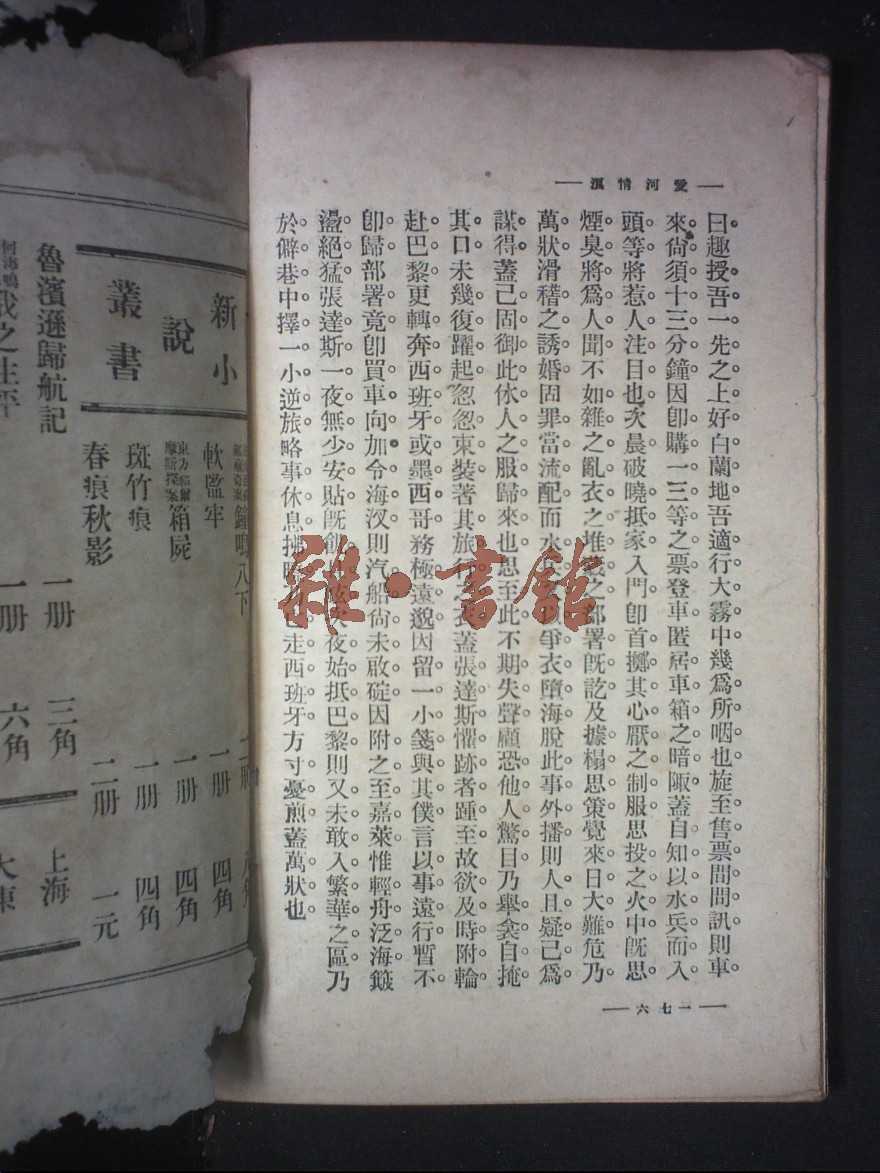 愛河情波
曰趣授吾一先之上好白蘭地吾適行大霧中幾爲所咽也旋至售票間問訊則車
來尙須十三分鐘因卽購一三等之票登車匿居車箱之暗陬蓋自知以水兵而入
頭等將惹人注目也次晨破曉抵家入門卽首擲其心厭之制服思投之火中旣思
煙臭將爲人聞不如雜之亂衣之堆歲之部署旣訖及據榻思策覺來日大難危乃
萬狀滑稽之誘婚固罪當流配而水 爭衣墮海脫此事外播則人且疑己爲
謀得蓋己固御此休人之服歸來也思至此不期失聲顧恐他人驚目乃舉衾自掩
其口未幾復躍起怱怱束裝著其旅行之衣蓋張達斯懼跡者踵至故欲及時附輪
赴巴黎更轉奔西班牙或墨西哥務極遠邈因留一小箋與其僕言以事遠行暫不
卽歸部署竟卽買車向加令海汊則汽船尙未啟碇因附之至嘉萊惟輕舟泛海簸
盪絕猛張達斯一夜無少安貼旣 次夜始抵巴黎則又未敢入繁華之區乃
於僻巷中擇一小逆旅略事休息 走西班牙方寸憂煎蓋萬狀也
一七六
新小說叢書
鐘鳴八下
四角
軟監牢 一册 四角
東方福爾摩斯探案 箱屍 一册 四角
斑竹痕 一册 四角
春痕秋影 二册 一元
魯濱遜歸航記 一册 三角
何海鳴 我之生活 一册 六角
上海
大東
雜·書館